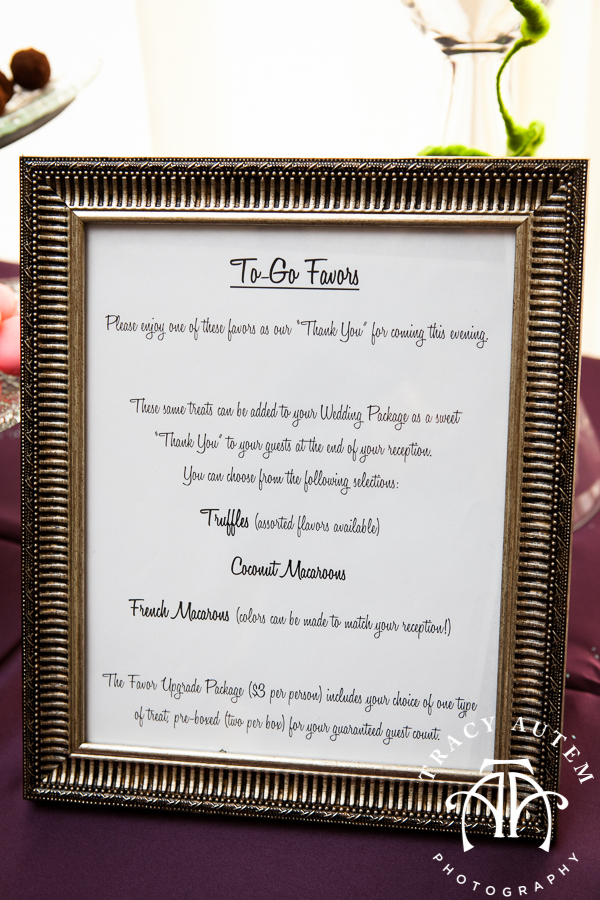 To-Go Favors
Please enjoy one of these favors as our "Thank You" for coming this evening.
These same treats can be added to your Wedding Package as a sweet
"Thank You" to your guests at the end of your reception.
You can choose from the following selections:
Truffles (assorted flavors available)
Coconut Macaroons
French Macarons (colors can be made to match your reception!)
The Favor Upgrade Package ($3 per person) includes your choice of one type
of treat, pre-boxed (two per box) for your guaranteed guest count.
TRACY AUTEM
PHOTOGRAPHY